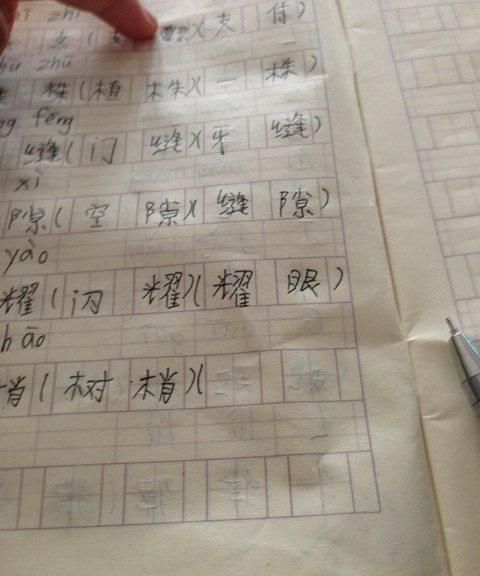 zhī
支(支 )(支付)
zhū
株(植株)(一株)
féng
缝(门缝)(牙缝)
xì
隙(空隙)(缝隙)
yào
耀(闪耀)(耀眼)
hāo
梢(树梢)(